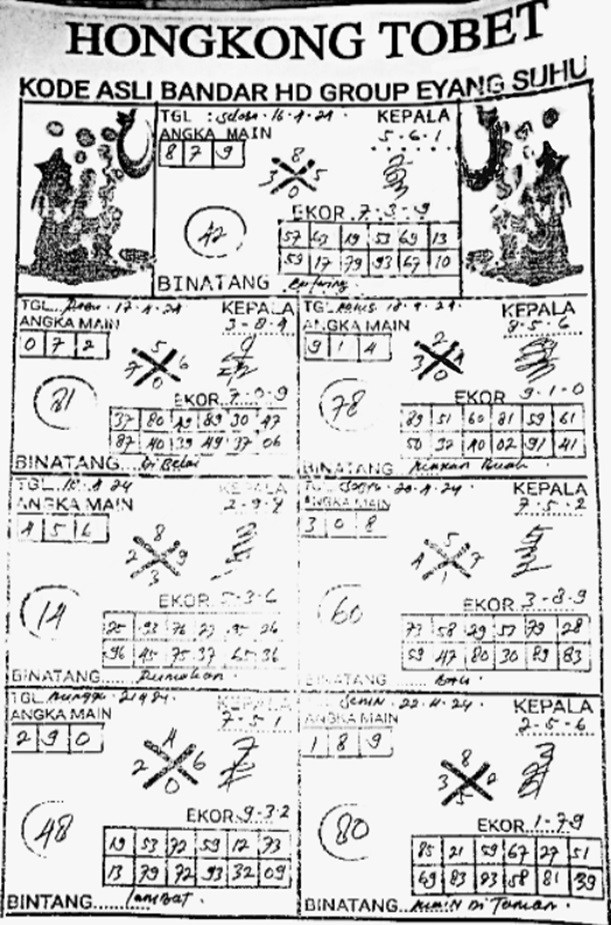 HONGKONG TOBET
KODE ASLI BANDAR HD GROUP EYANG SUHU
TGL : Selasa 16-4-24 KEPALA
ANGKA MAIN 5-6-1
8 7 9
8
3 5
0
42
EKOR 7-3-9
57 63 19 53 69 13
59 17 79 93 67 10
BINATANG
TGL Rabu 17-4-24 KEPALA
ANGKA MAIN 3-8-4
0 7 2
5
7 6
0
81
EKOR 7-0-9
37 80 49 89 30 47
87 40 39 49 37 06
BINATANG
TGL Kamis 18-4-24 KEPALA
ANGKA MAIN 8-5-6
9 1 4
2
3 4
0
78
EKOR 9-1-0
89 51 60 81 59 61
50 32 40 02 91 41
BINATANG Makan Buah
TGL 4 24 KEPALA
ANGKA MAIN 2-9-
4 5 6
8
2 9
3
14
EKOR 5-3-6
25 93 76 27 95 26
96 45 75 37 65 36
BINATANG
TGL 20-4-24 KEPALA
ANGKA MAIN 7-5-2
3 0 8
5
4 7
1
60
EKOR 3-8-9
73 58 29 57 79 28
59 47 80 30 89 83
BINATANG
TGL Minggu 21 4 24 KEPALA
ANGKA MAIN 7-5-1
2 9 0
4
2 6
0
48
EKOR 9-3-2
19 53 72 59 12 73
13 79 72 93 32 09
BINTANG Lambat
TGL Senin 22-4-24 KEPALA
ANGKA MAIN 2-5-6
1 8 9
8
3 0
5
80
EKOR 1-7-9
85 21 59 67 27 51
69 83 23 58 81 39
BINATANG Main Di Taman